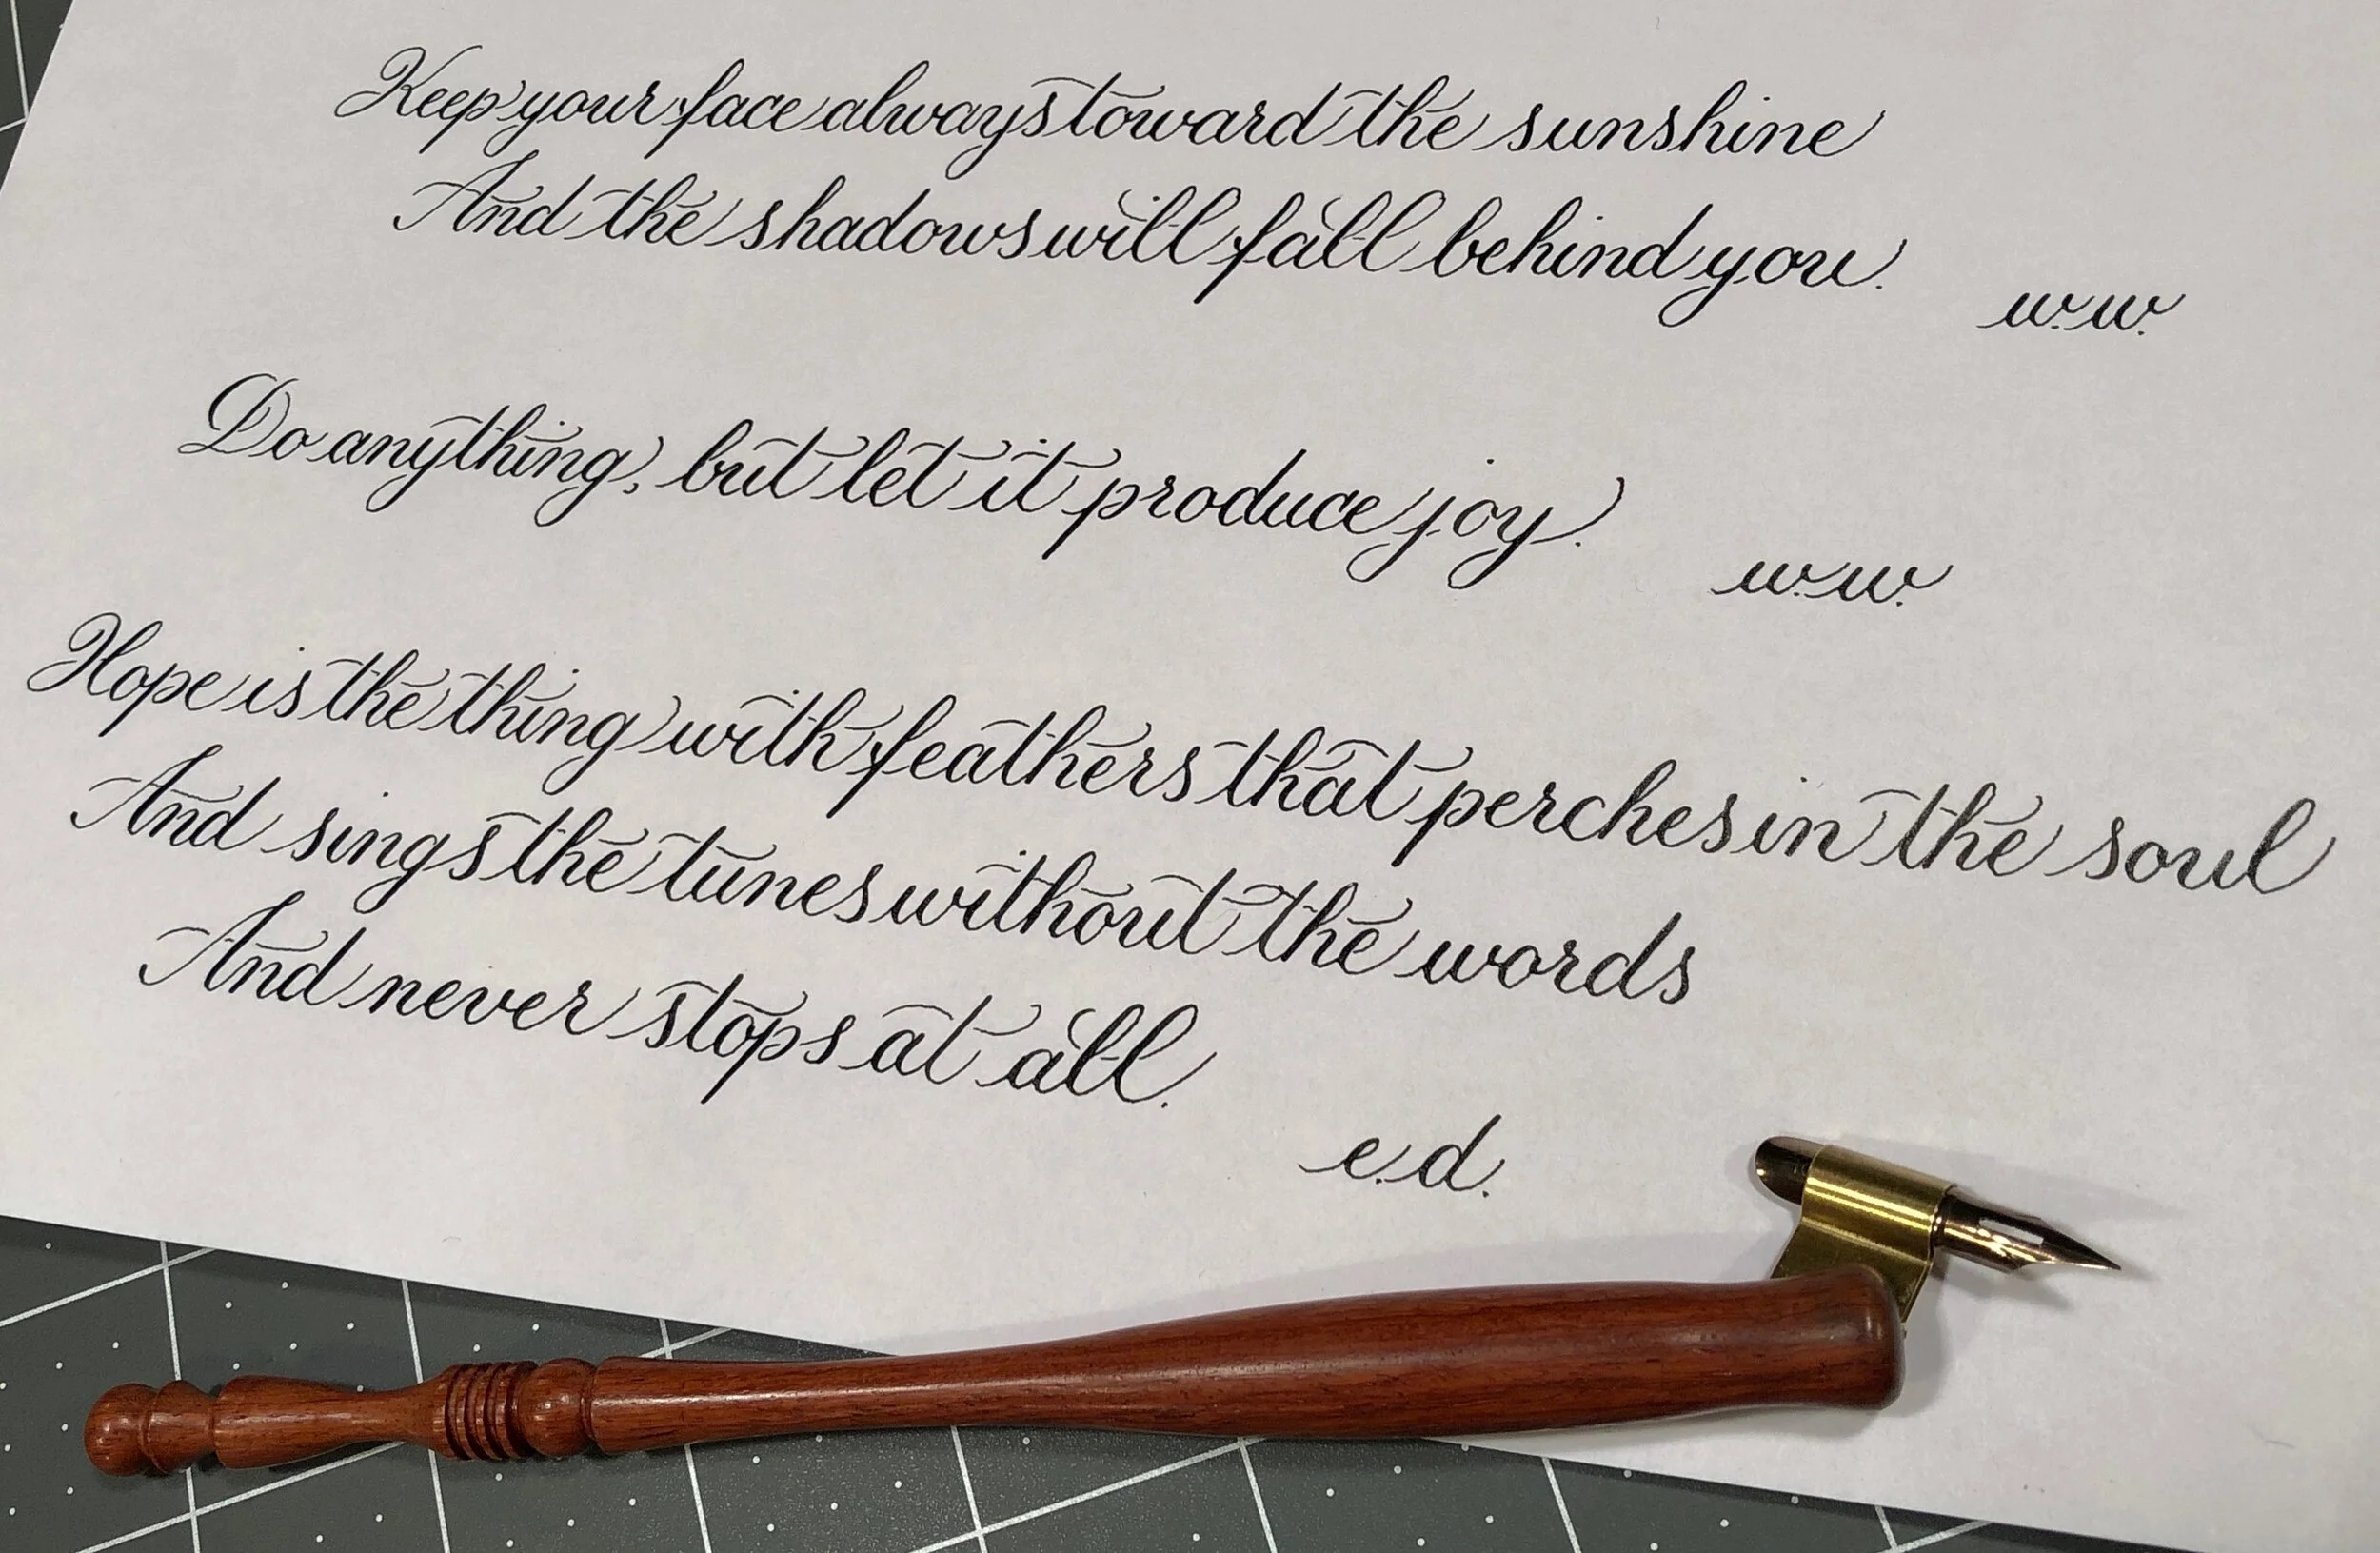 Keep your face always toward the sunshine
And the shadows will fall behind you.
w.w.
Do anything, but let it produce joy.
w.w.
Hope is the thing with feathers that perches in the soul
And sings the tunes without the words
And never stops at all.
e.d.